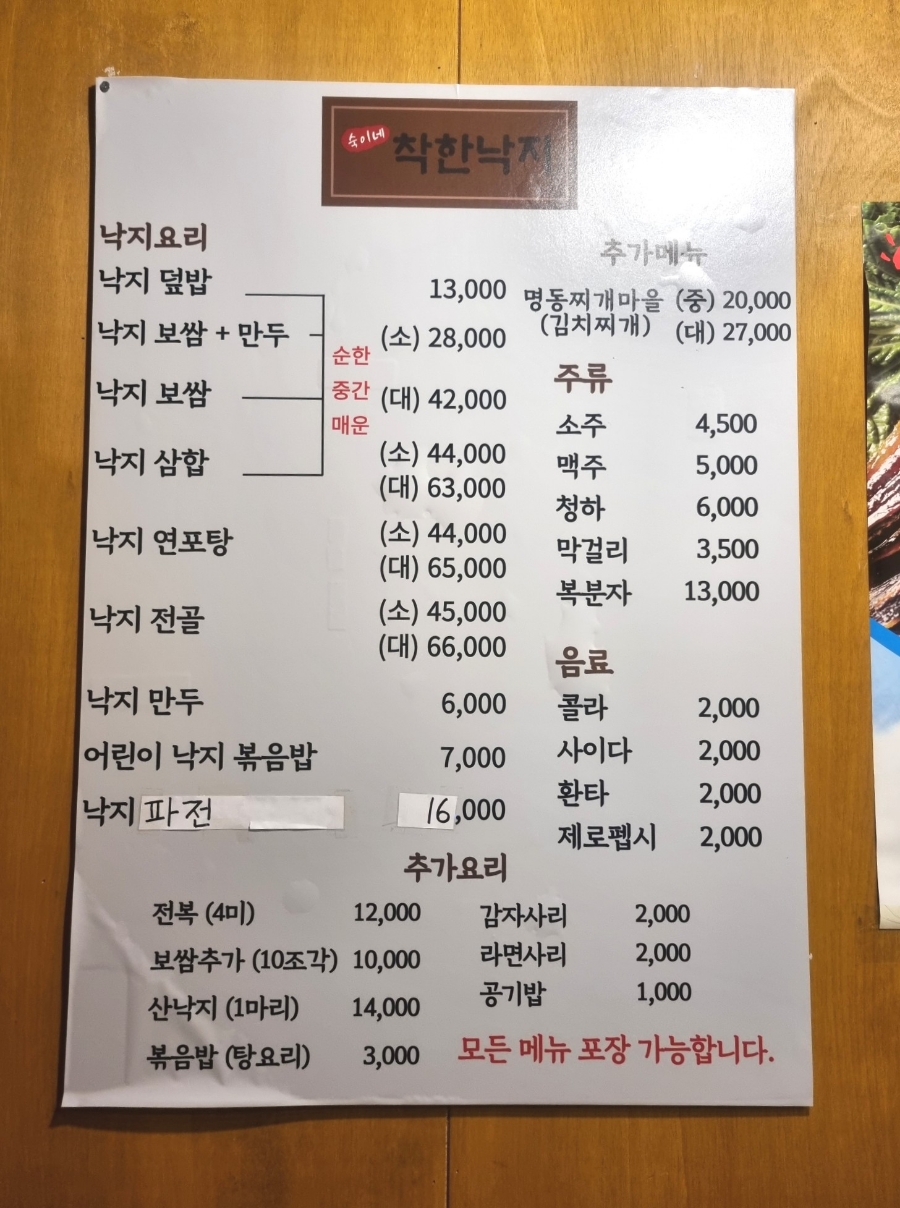 숙이네 착한낙지
낙지요리
낙지 덮밥 13,000
낙지 보쌈 + 만두 (소) 28,000
낙지 보쌈 (대) 42,000
순한
중간
매운
낙지 삼합 (소) 44,000
(대) 63,000
낙지 연포탕 (소) 44,000
(대) 65,000
낙지 전골 (소) 45,000
(대) 66,000
낙지 만두 6,000
어린이 낙지 볶음밥 7,000
낙지 파전 16,000
추가메뉴
명동찌개마을 (중) 20,000
(김치찌개) (대) 27,000
주류
소주 4,500
맥주 5,000
청하 6,000
막걸리 3,500
복분자 13,000
음료
콜라 2,000
사이다 2,000
환타 2,000
제로펩시 2,000
추가요리
전복 (4미) 12,000
보쌈추가 (10조각) 10,000
산낙지 (1마리) 14,000
볶음밥 (탕요리) 3,000
감자사리 2,000
라면사리 2,000
공기밥 1,000
모든 메뉴 포장 가능합니다.